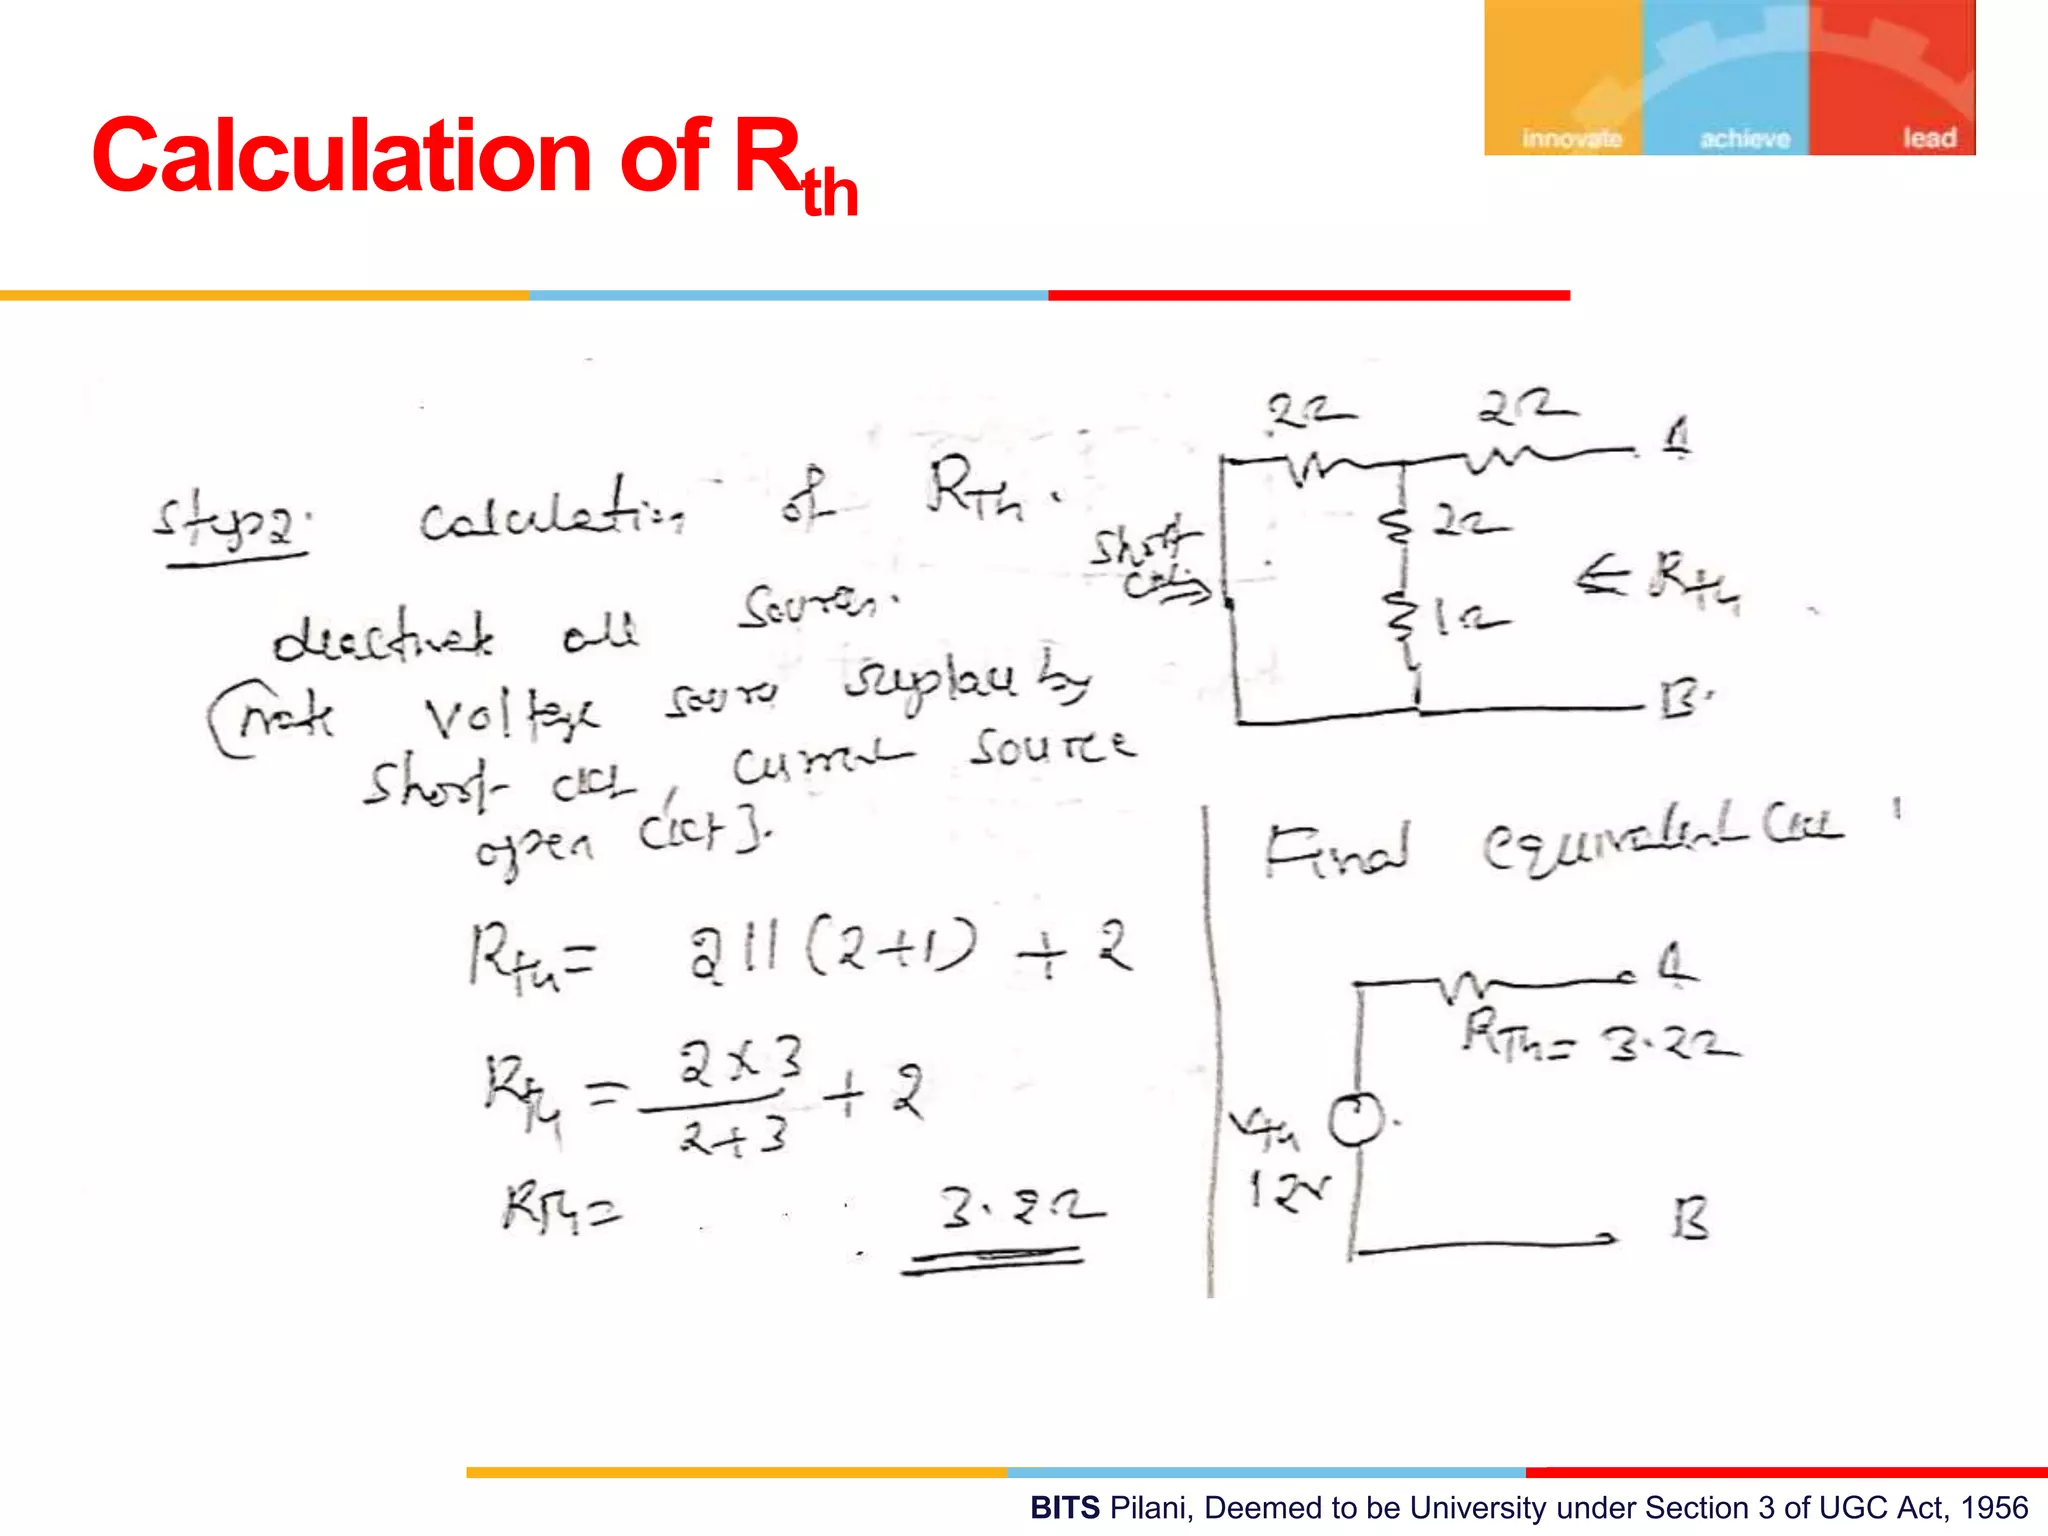 innovate achieve lead
Calculation of Rth
Step2. Calculation of RTh.
deactivate all sources.
(note voltage source replace by
short ckt, current source
open ckt].
RTh = 2||(2+1) + 2
RTh = 2×3/2+3 + 2
RTh = 3.2Ω
2Ω 2Ω A
short
ckt.
2Ω
⇐ RTh
1Ω
B.
Final equivalent
A
RTh = 3.2Ω
VTh
12V
B
BITS Pilani, Deemed to be University under Section 3 of UGC Act, 1956